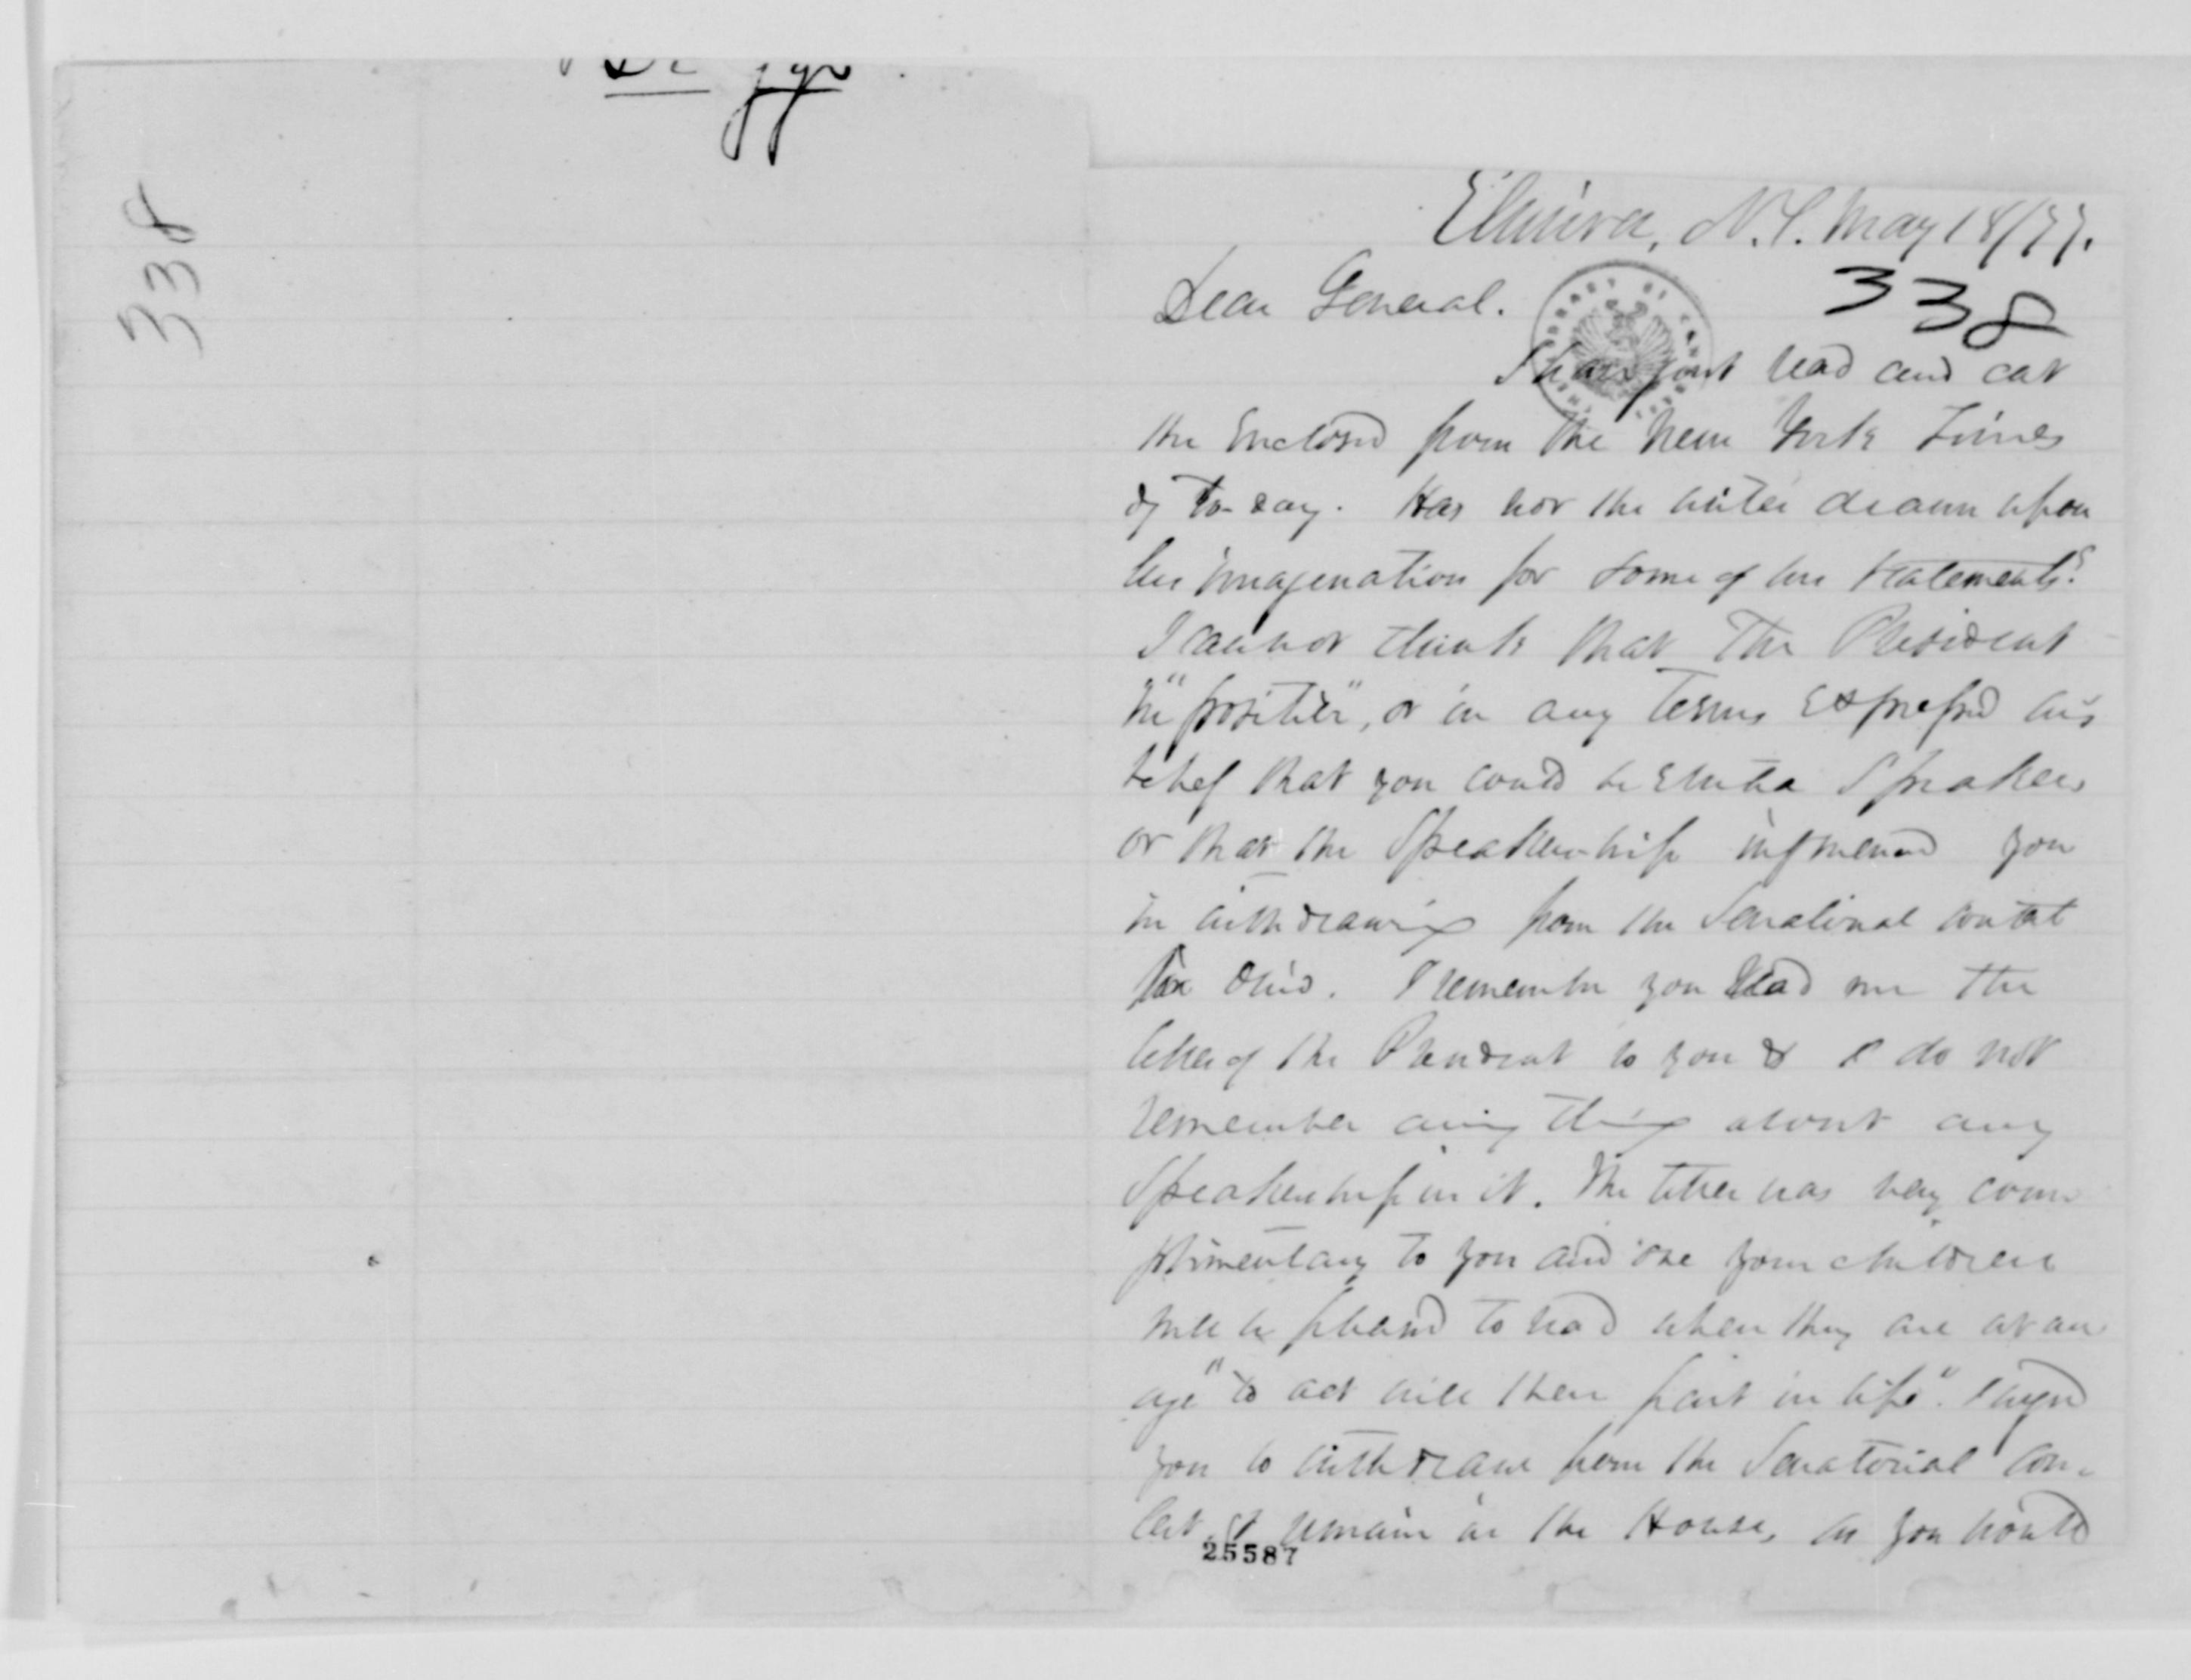 338
Elmira, N.Y. May 18/77.
Dear General.
338
I have just read and cut
the enclosed from the New York Times
of to-day. Has not the writer drawn upon
his imagination for some of his statements?
I cannot think that the President
in "positive", or in any terms expressed his
belief that you could be elected Speaker
or that the Speakership influenced you
in withdrawing from the Senatorial contest
in Ohio. I remember you read me the
letter of the President to you & I do not
remember any thing about any
Speakership in it. The letter was very com
plimentary to you and one your children
will be pleased to read when they are at an
age "to act well their part in life". I urged
you to withdraw from the Senatorial con-
test, & remain in the House, as you would
25587